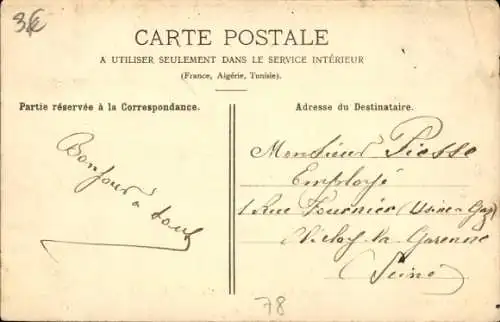 3€
CARTE POSTALE
A UTILISER SEULEMENT DANS LE SERVICE INTÉRIEUR
(France, Algérie, Tunisie).
Partie réservée à la Correspondance.
Adresse du Destinataire.
Bonjour à tous
Monsieur Piesse
Employé
1 Rue Fournier (Usine à Gaz)
la Garenne
(Seine)
78